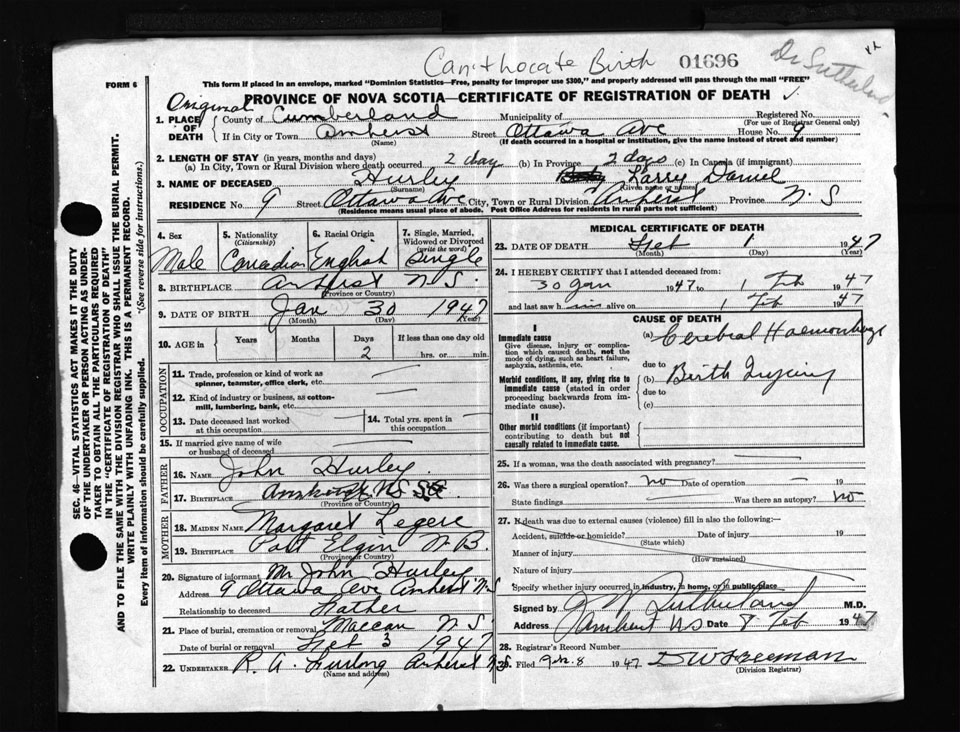 Can't locate Birth 01696 Dr Sutherland
FORM 6
This form if placed in an envelope, marked "Dominion Statistics—Free, penalty for improper use $300," and properly addressed will pass through the mail "FREE"
Original
PROVINCE OF NOVA SCOTIA—CERTIFICATE OF REGISTRATION OF DEATH
1. PLACE OF DEATH County of Cumberland Municipality of Registered No. (For use of Registrar General only)
If in City or Town Amherst (Name) Street Ottawa Ave House No. 9
(If death occurred in a hospital or institution, give the name instead of street and number)
2. LENGTH OF STAY (in years, months and days)
(a) In City, Town or Rural Division where death occurred 2 day (b) In Province 2 days (c) In Canada (if immigrant)
3. NAME OF DECEASED Hurley (Surname) Larry Daniel (Given name or names)
RESIDENCE No. 9 Street Ottawa Ave City, Town or Rural Division Amherst Province N.S
(Residence means usual place of abode. Post Office Address for residents in rural parts not sufficient)
4. Sex Male
5. Nationality (Citizenship) Canadian
6. Racial Origin English
7. Single, Married, Widowed or Divorced (write the word) Single
8. BIRTHPLACE Amherst N.S (Province or Country)
9. DATE OF BIRTH Jan 30 1947 (Month) (Day) (Year)
10. AGE in Years Months Days 2 If less than one day old hrs. or min.
OCCUPATION
11. Trade, profession or kind of work as spinner, teamster, office clerk, etc.
12. Kind of industry or business, as cotton-mill, lumbering, bank, etc.
13. Date deceased last worked at this occupation
14. Total yrs. spent in this occupation
15. If married give name of wife or husband of deceased
FATHER
16. NAME John Hurley
17. BIRTHPLACE N.S (Province or Country)
MOTHER
18. MAIDEN NAME Margaret Legere
19. BIRTHPLACE Port Elgin N.B. (Province or Country)
20. Signature of informant Mr John Hurley
Address 9 Ottawa Ave Amherst N.S
Relationship to deceased Father
21. Place of burial, cremation or removal Maccan N.S
Date of burial or removal Feb 3 1947
22. UNDERTAKER R. A. Furlong Amherst N.S. (Name and address)
MEDICAL CERTIFICATE OF DEATH
23. DATE OF DEATH Feb 1 1947 (Month) (Day) (Year)
24. I HEREBY CERTIFY that I attended deceased from:
30 Jan 1947 to 1 Feb 1947
and last saw him alive on 1 Feb 1947
CAUSE OF DEATH
I
Immediate cause
Give disease, injury or complication which caused death, not the mode of dying, such as heart failure, asphyxia, asthenia, etc.
(a) Cerebral Haemorrhage
due to
Morbid conditions, if any, giving rise to immediate cause (stated in order proceeding backwards from immediate cause).
(b) Birth Injury
due to
(c)
II
Other morbid conditions (if important) contributing to death but not causally related to immediate cause.
25. If a woman, was the death associated with pregnancy?
26. Was there a surgical operation? no Date of operation — 19
State findings Was there an autopsy? no
27. If death was due to external causes (violence) fill in also the following:—
Accident, suicide or homicide? (State which) Date of injury 19
Manner of injury (How sustained)
Nature of injury
Specify whether injury occurred in industry, in home, or in public place
Signed by Sutherland M.D.
Address Amherst N.S Date 8 Feb 1947
28. Registrar's Record Number
Filed Feb. 8 1947 D W Freeman (Division Registrar)
SEC. 46—VITAL STATISTICS ACT MAKES IT THE DUTY
OF THE UNDERTAKER OR PERSON ACTING AS UNDER-
TAKER TO OBTAIN ALL THE PARTICULARS REQUIRED
IN THE "CERTIFICATE OF REGISTRATION OF DEATH"
AND TO FILE THE SAME WITH THE DIVISION REGISTRAR WHO SHALL ISSUE THE BURIAL PERMIT.
WRITE PLAINLY WITH UNFADING INK. THIS IS A PERMANENT RECORD.
Every item of information should be carefully supplied. (See reverse side for instructions.)